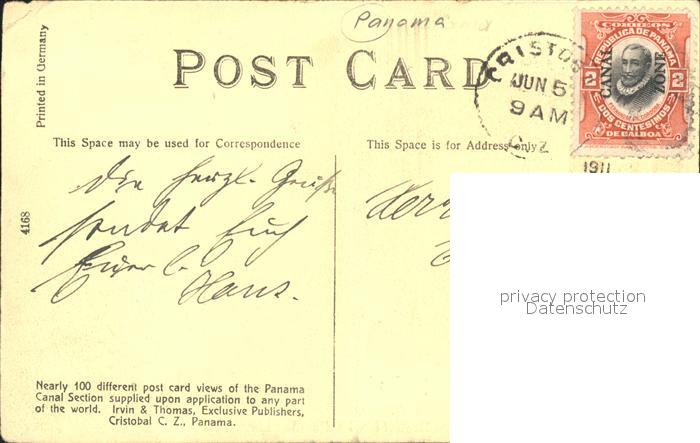 Panama
Printed in Germany
POST CARD
CRISTOB
JUN 5
9 AM
C. Z.
1911
CORREOS
REPUBLICA DE PANAMA
CANAL ZONE
2 2
DOS CENTESIMOS
DE BALBOA
This Space may be used for Correspondence
This Space is for Address only
Die herzl. Grüße
sendet Euch
Euer l.
Hans.
Herr
4168
privacy protection
Datenschutz
Nearly 100 different post card views of the Panama
Canal Section supplied upon application to any part
of the world. Irvin & Thomas, Exclusive Publishers,
Cristobal C. Z., Panama.